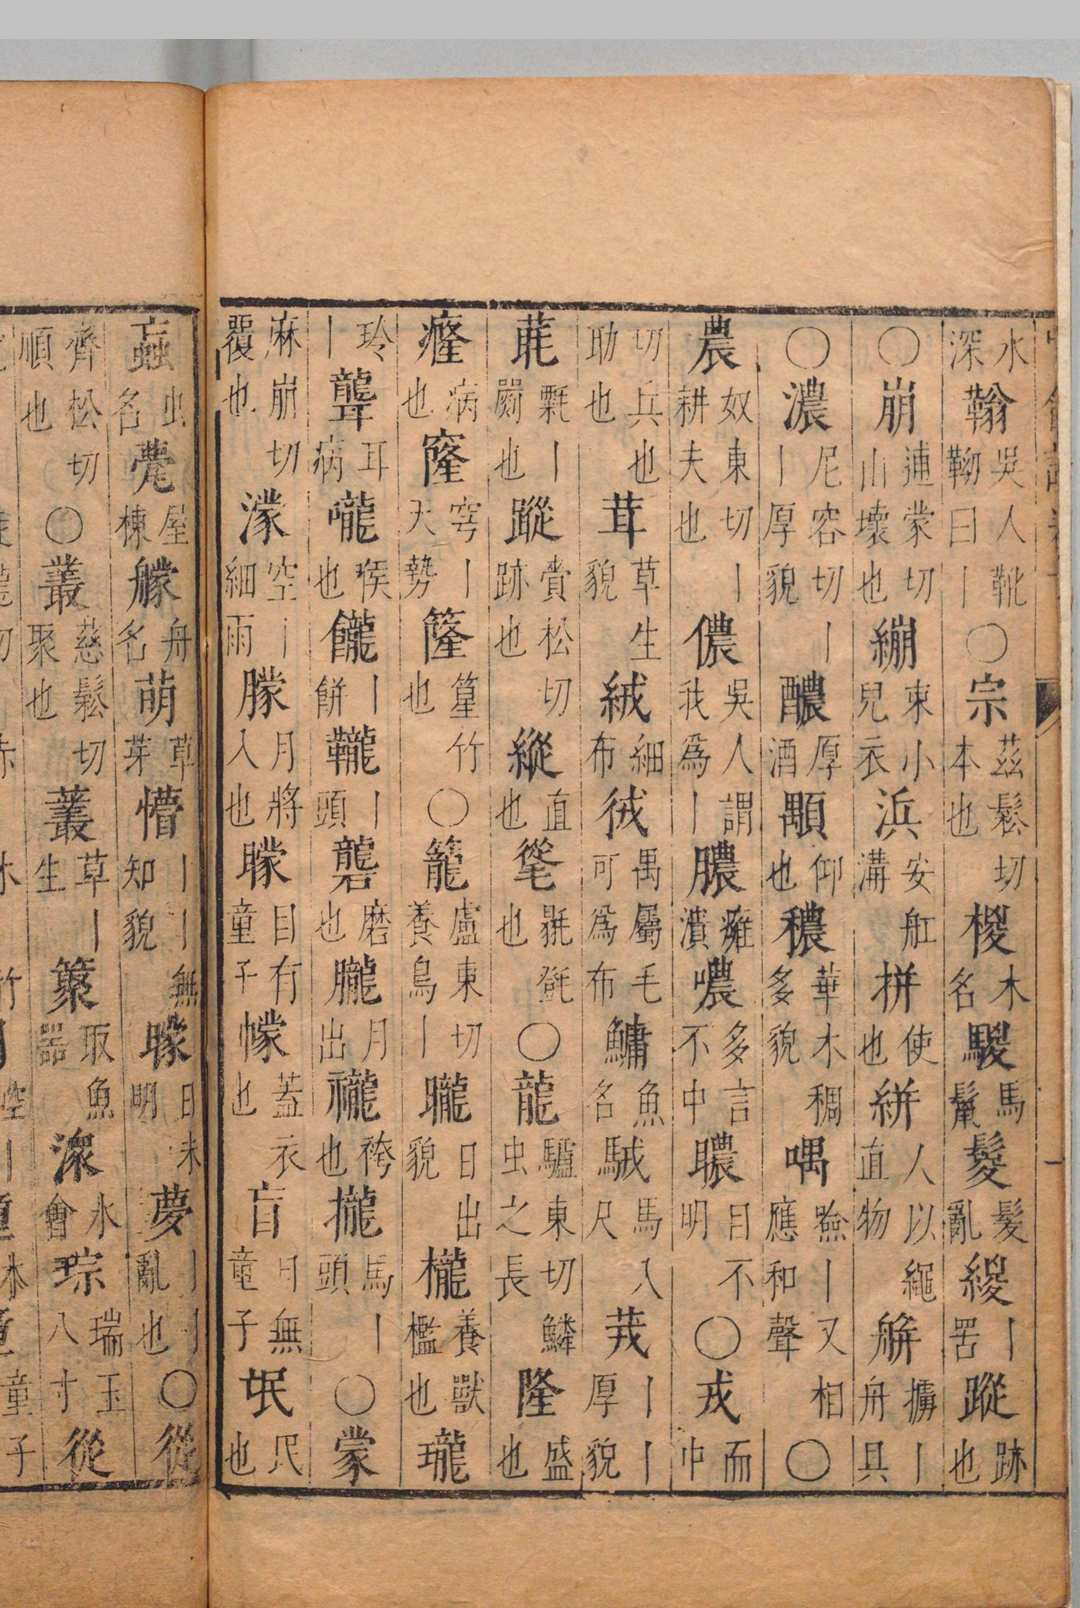 水深䩺吳人靴靿曰丨○宗茲鬆切本也椶木名騣馬鬣鬉髮亂緵丨罟蹤跡也
○崩逋蒙切山壞也繃束小兒衣浜安舡溝拼使也絣人以繩直物丨舟具
○濃尼容切丨丨厚貌醲厚酒顒仰也穠華木稠多貌喁噞丨又相應和聲○
農奴東切丨耕夫也儂吳人謂我為丨膿癰潰噥多言不中目不明○戎而中
切兵也助也茸草生貌絨細布狨禺屬毛可為布鱅魚名駥馬八尺茙丨丨厚貌
氈丨罽也蹤賫松切跡也縱直也○龍驢東切鱗虫之長隆盛也
癃病也窿穹丨天勢篁竹也○籠盧東切養鳥丨曨日出貌櫳養獸檻也瓏
玲丨聾耳病嚨喉也丨餅丨頭礱磨也朧月出襱袴也攏馬丨頭○蒙
麻崩切覆也濛空丨細雨朦月將入也矇目有童子幪蓋衣也盲目無童子氓民也
蝱虫名甍屋棟艨舟名萌草芽懵丨丨無知貌曚日未明夢丨丨亂也○從
齊松切順也○叢慈鬆切聚也草丨生取魚器潀水會琮瑞玉八寸從